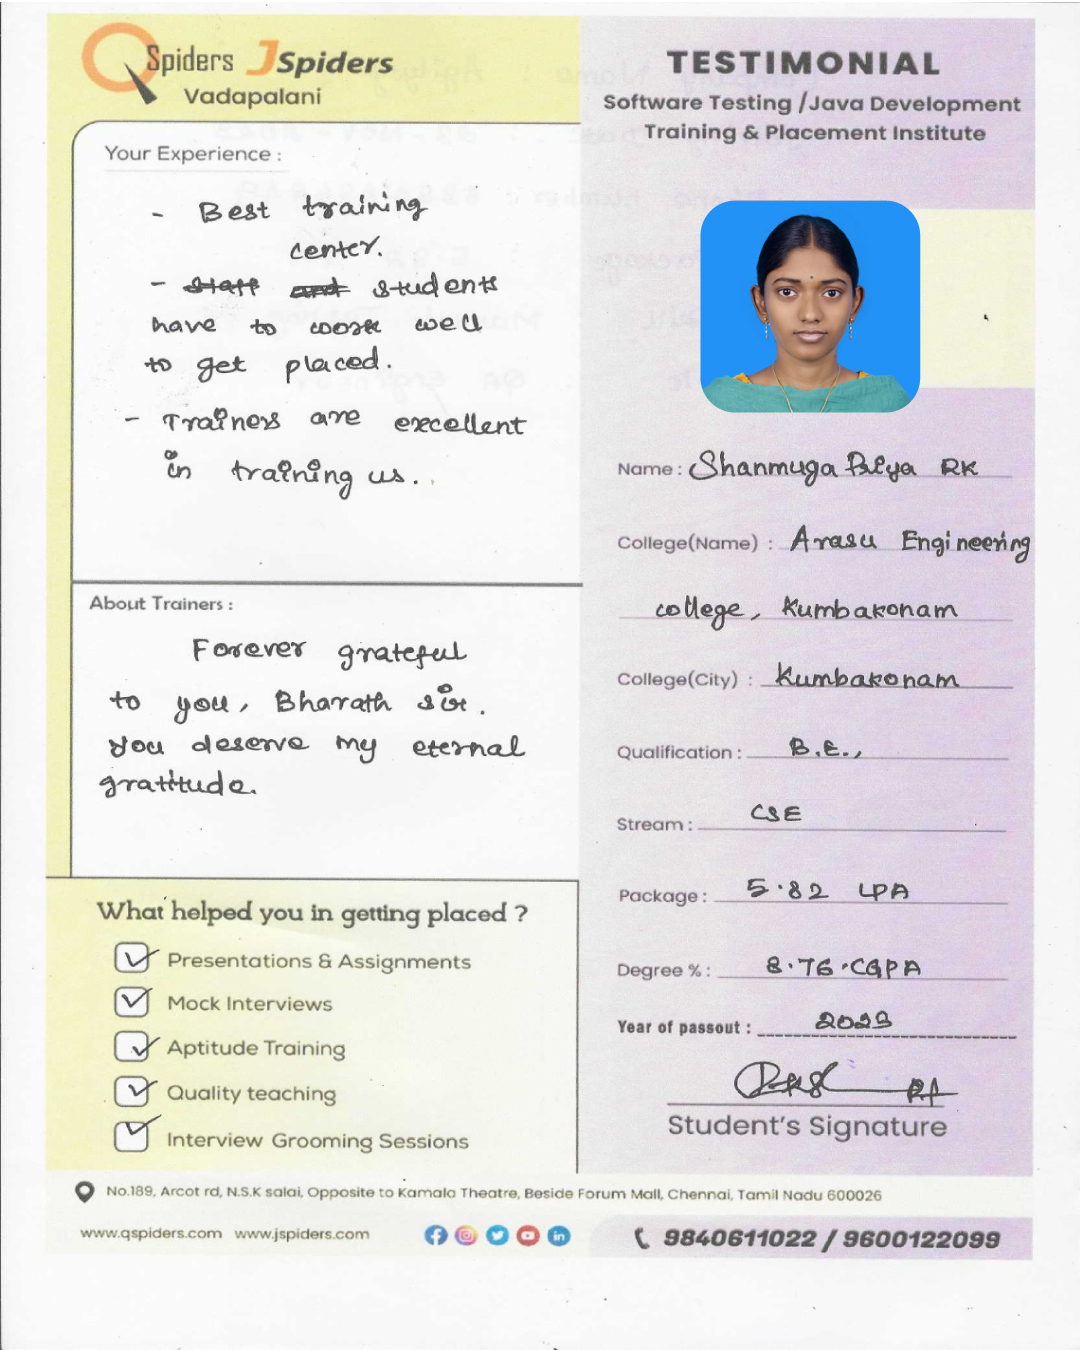 QSpiders JSpiders
Vadapalani
TESTIMONIAL
Software Testing /Java Development
Training & Placement Institute
Your Experience :
- Best training
center.
- staff and students
have to work well
to get placed.
- Trainers are excellent
in training us.
About Trainers :
Forever grateful
to you, Bharath sir.
You deserve my eternal
gratitude.
What helped you in getting placed ?
Presentations & Assignments
Mock Interviews
Aptitude Training
Quality teaching
Interview Grooming Sessions
Name : Shanmuga Priya RK
College(Name) : Arasu Engineering
college, Kumbakonam
College(City) : Kumbakonam
Qualification : B.E.,
Stream : CSE
Package : 5.82 LPA
Degree % : 8.76 CGPA
Year of passout : 2023
Student's Signature
No.189, Arcot rd, N.S.K salai, Opposite to Kamala Theatre, Beside Forum Mall, Chennai, Tamil Nadu 600026
www.qspiders.com www.jspiders.com
9840611022 / 9600122099